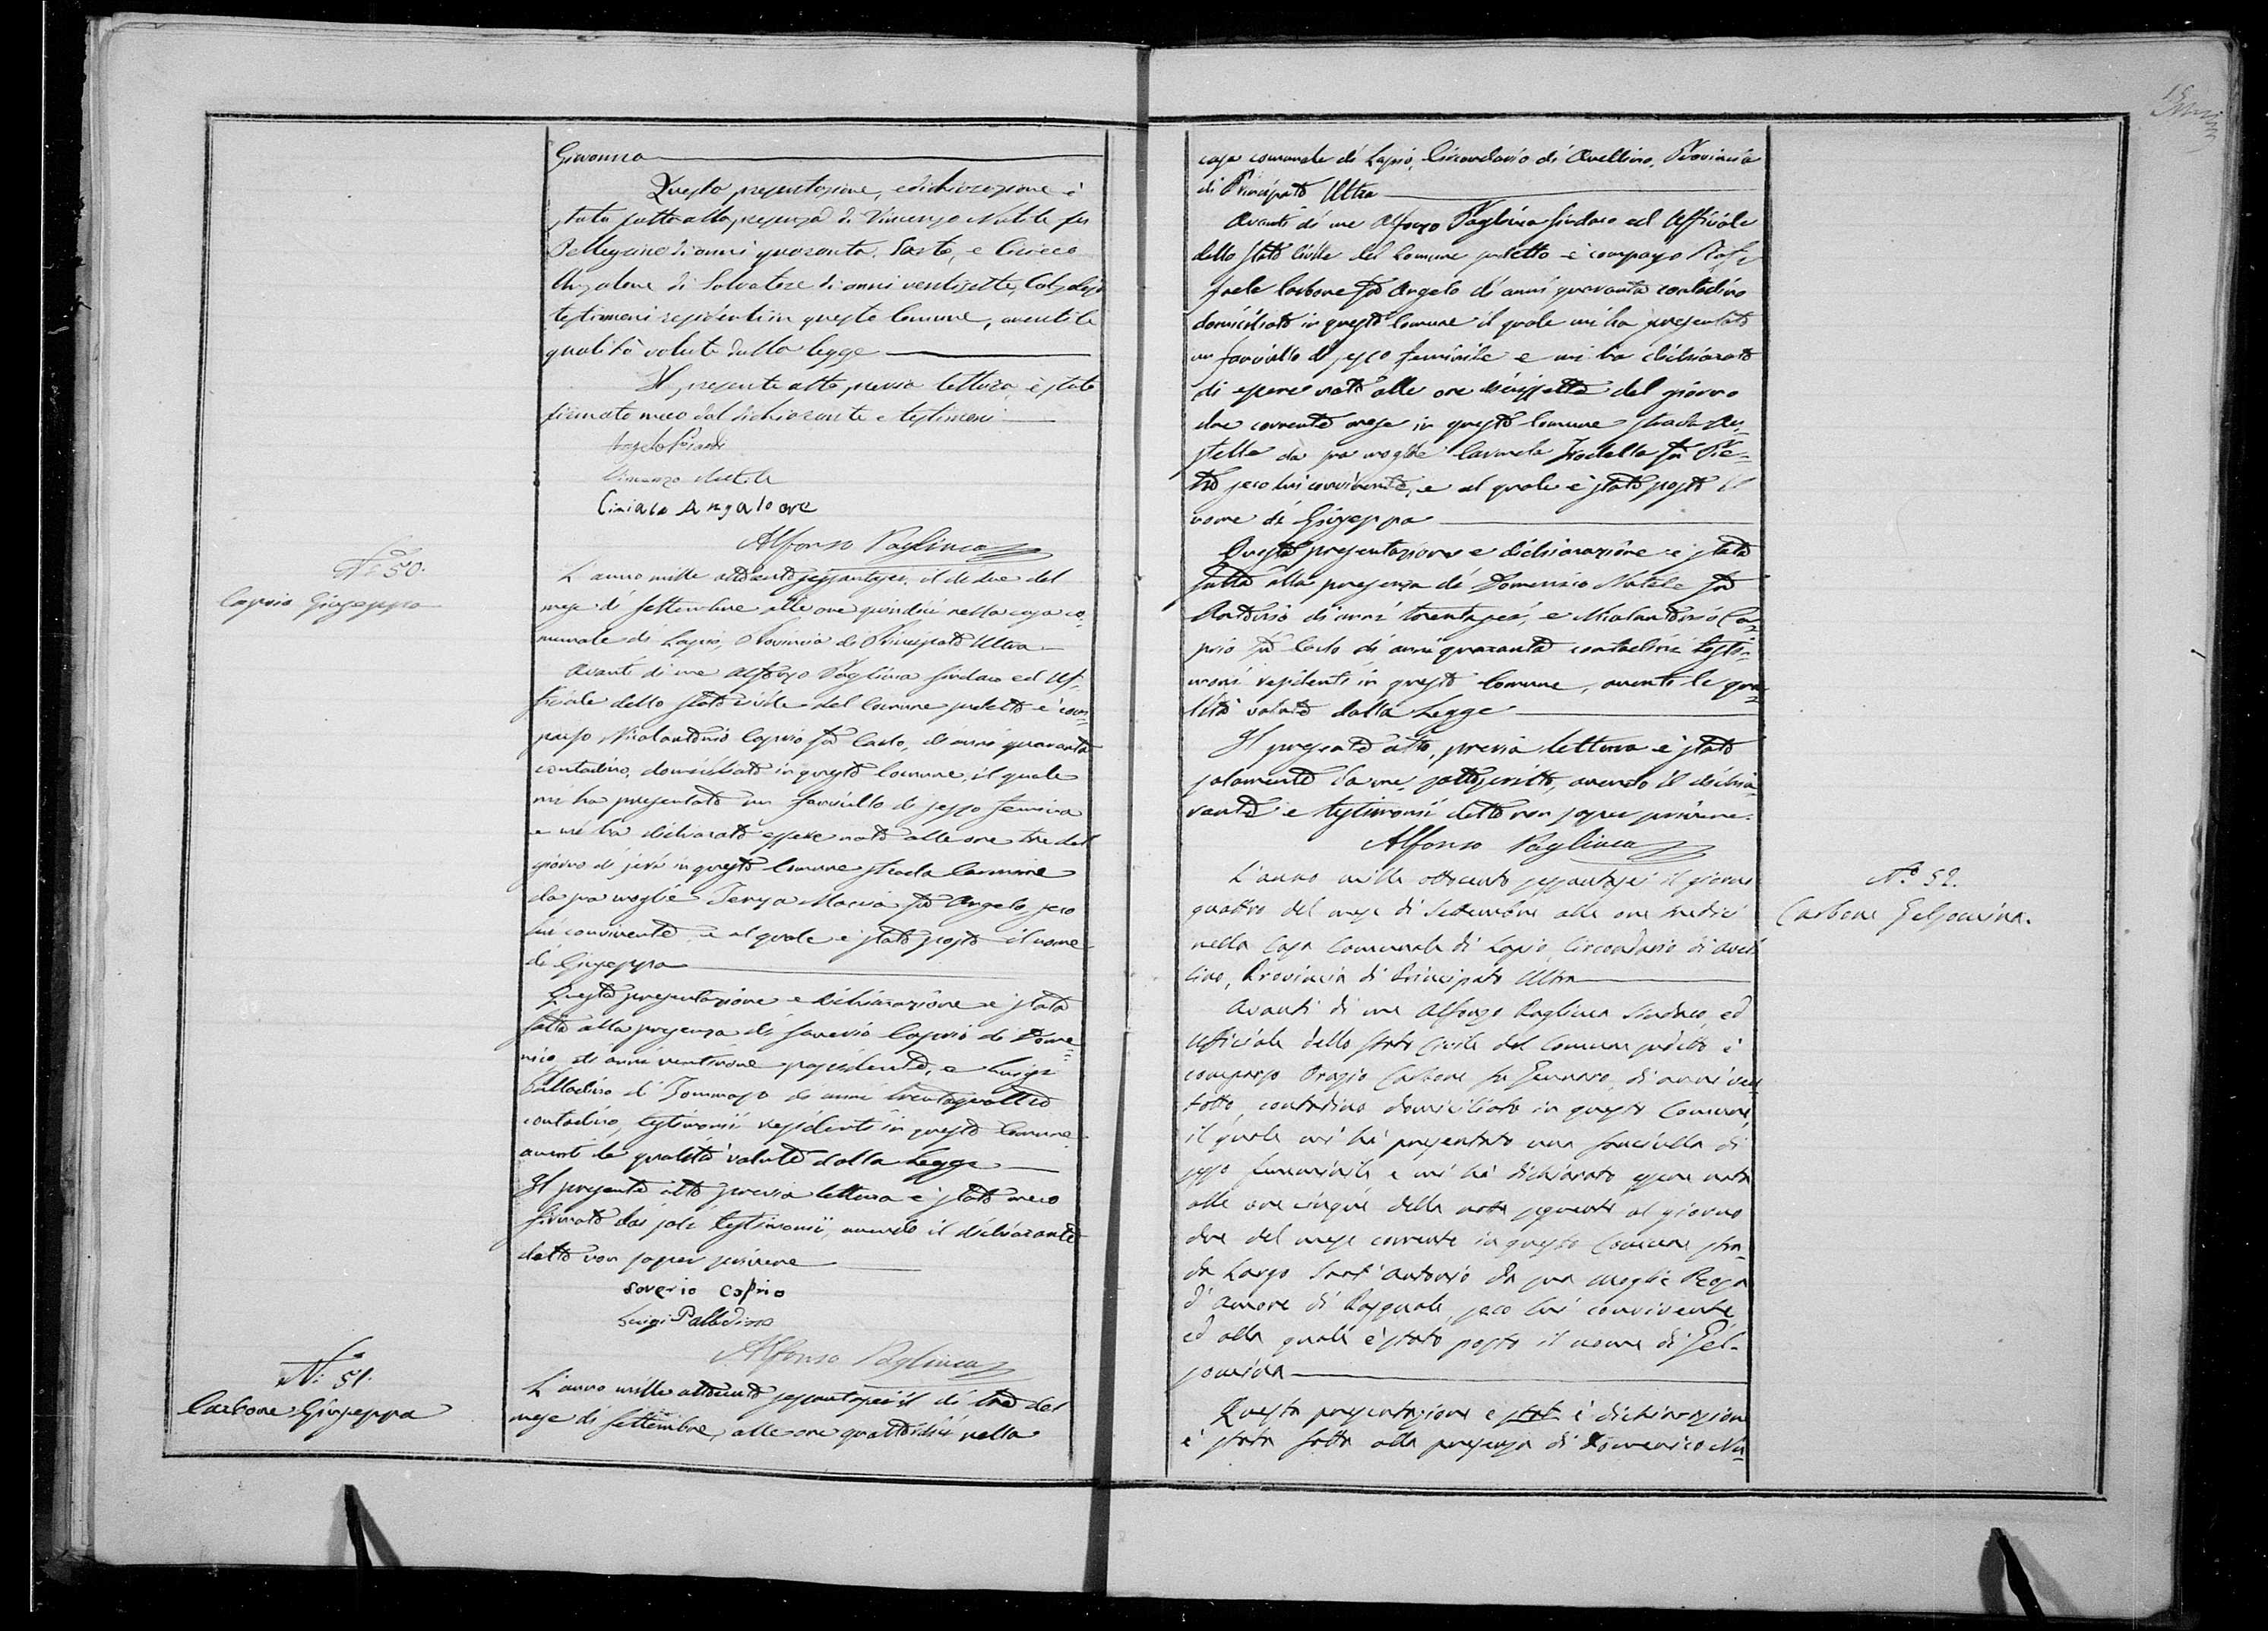 Giovanna
Questa presentazione, e dichiarazione è
stata fatta alla presenza di Vincenzo Natale fu
Pellegrino di anni quaranta, Sarto, e Ciriaco
Angalone di Salvatore di anni ventisette, Calzolajo
testimoni residenti in questo Comune, aventi le
qualità volute dalla legge
Il presente atto previa lettura, è stato
firmato meco dal dichiarante e testimoni
Vincenzo Natale
Ciriaco Angalo one
Alfonso Pagliuca
No. 50.
Caprio Giuseppa
L'anno mille ottocento sessantasei, il dì due del
mese di Settembre alle ore quindici nella casa co=
munale di Lapio, Provincia di Principato Ultra
Avanti di me Alfonzo Pagliuca Sindaco ed Uf=
ficiale dello Stato Civile del Comune sudetto è com=
parso Nicolantonio Caprio fu Carlo, di anni quaranta
contadino, domiciliato in questo Comune, il quale
mi ha presentato un fanciullo di sesso femina
e mi ha dichiarato essere nato alle ore tre del
giorno di jeri in questo Comune strada Carmine
da sua moglie Teresa Maria fu Angelo, seco
lui convivente, e al quale è stato posto il nome
di Giuseppa
Questa presentazione e dichiarazione è stata
fatta alla presenza di Saverio Caprio di Dome=
nico di anni ventinove possidente, e Luigi
Palladino di Tommaso di anni trentaquattro
contadino, testimonii residenti in questo Comune
aventi le qualità volute dalla Legge
Il presente atto previa lettura è stato meco
firmato dai soli testimonii, avendo il dichiarante
detto non saper scrivere
Saverio Caprio
Luigi Palladino
Alfonso Pagliuca
No. 51.
Carbone Giuseppa
L'anno mille ottocento sessantasei il dì tre del
mese di Settembre, alle ore quattordici nella
casa comunale di Lapio, Circondario di Avellino, Provincia
di Principato Ultra
Avanti di me Alfonzo Pagliuca Sindaco ed Ufficiale
dello Stato Civile del Comune sudetto è comparso Raf=
faele Carbone fu Angelo di anni quaranta contadino
domiciliato in questo Comune il quale mi ha presentato
un fanciullo di sesso feminile e mi ha dichiarato
di essere nato alle ore diecissette del giorno
due corrente mese in questo Comune strada
da sua moglie Carmela fu Pie=
tro seco lui convivente, e al quale è stato posto il
nome di Giuseppa
Questa presentazione e dichiarazione è stata
fatta alla presenza di Domenico Natale fu
Antonio di anni trentasei, e Nicolantonio Ca=
prio fu Carlo di anni quaranta contadini testi=
monii residenti in questo Comune, aventi le qua=
lità volute dalla Legge
Il presente atto, previa lettura è stato
solamente da me sottoscritto, avendo il dichia=
rante e testimonii detto non saper scrivere.
Alfonso Pagliuca
No. 52.
Carbone Gelsomina.
L'anno mille ottocento sessantasei il giorno
quattro del mese di Settembre alle ore tredici
nella Casa Comunale di Lapio, Circondario di Avel=
lino, Provincia di Principato Ultra
Avanti di me Alfonzo Pagliuca Sindaco, ed
Ufficiale dello Stato Civile del Comune sudetto è
comparso Orazio Carbone fu Gennaro, di anni ven
totto, contadino domiciliato in questo Comune,
il quale mi hà presentato una fanciulla di
sesso femminile, e mi hà dichiarato essere nata
alle ore cinque della notte seguente al giorno
due del mese corrente in questo Comune stra=
da Largo Sant'Antonio da sua moglie Rosa
d'Amore di Pasquale, seco lui convivente
ed alla quale è stato posto il nome di Gel=
somina
Questa presentazione e stat è dichiarazione
è stata fatta alla presenza di Domenico Na=